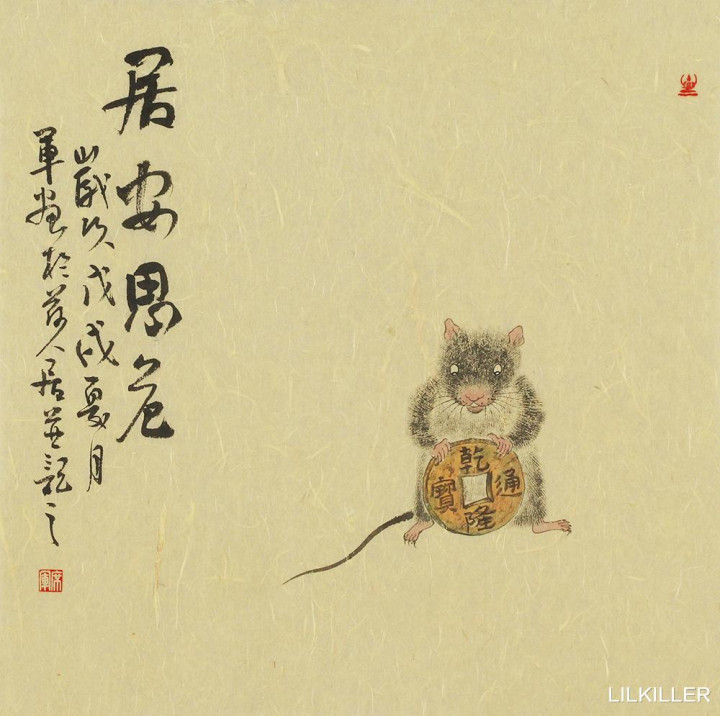 居安思危
歲次戊戌夏月
軍畫於人居並記之
乾隆通寶
LILKILLER